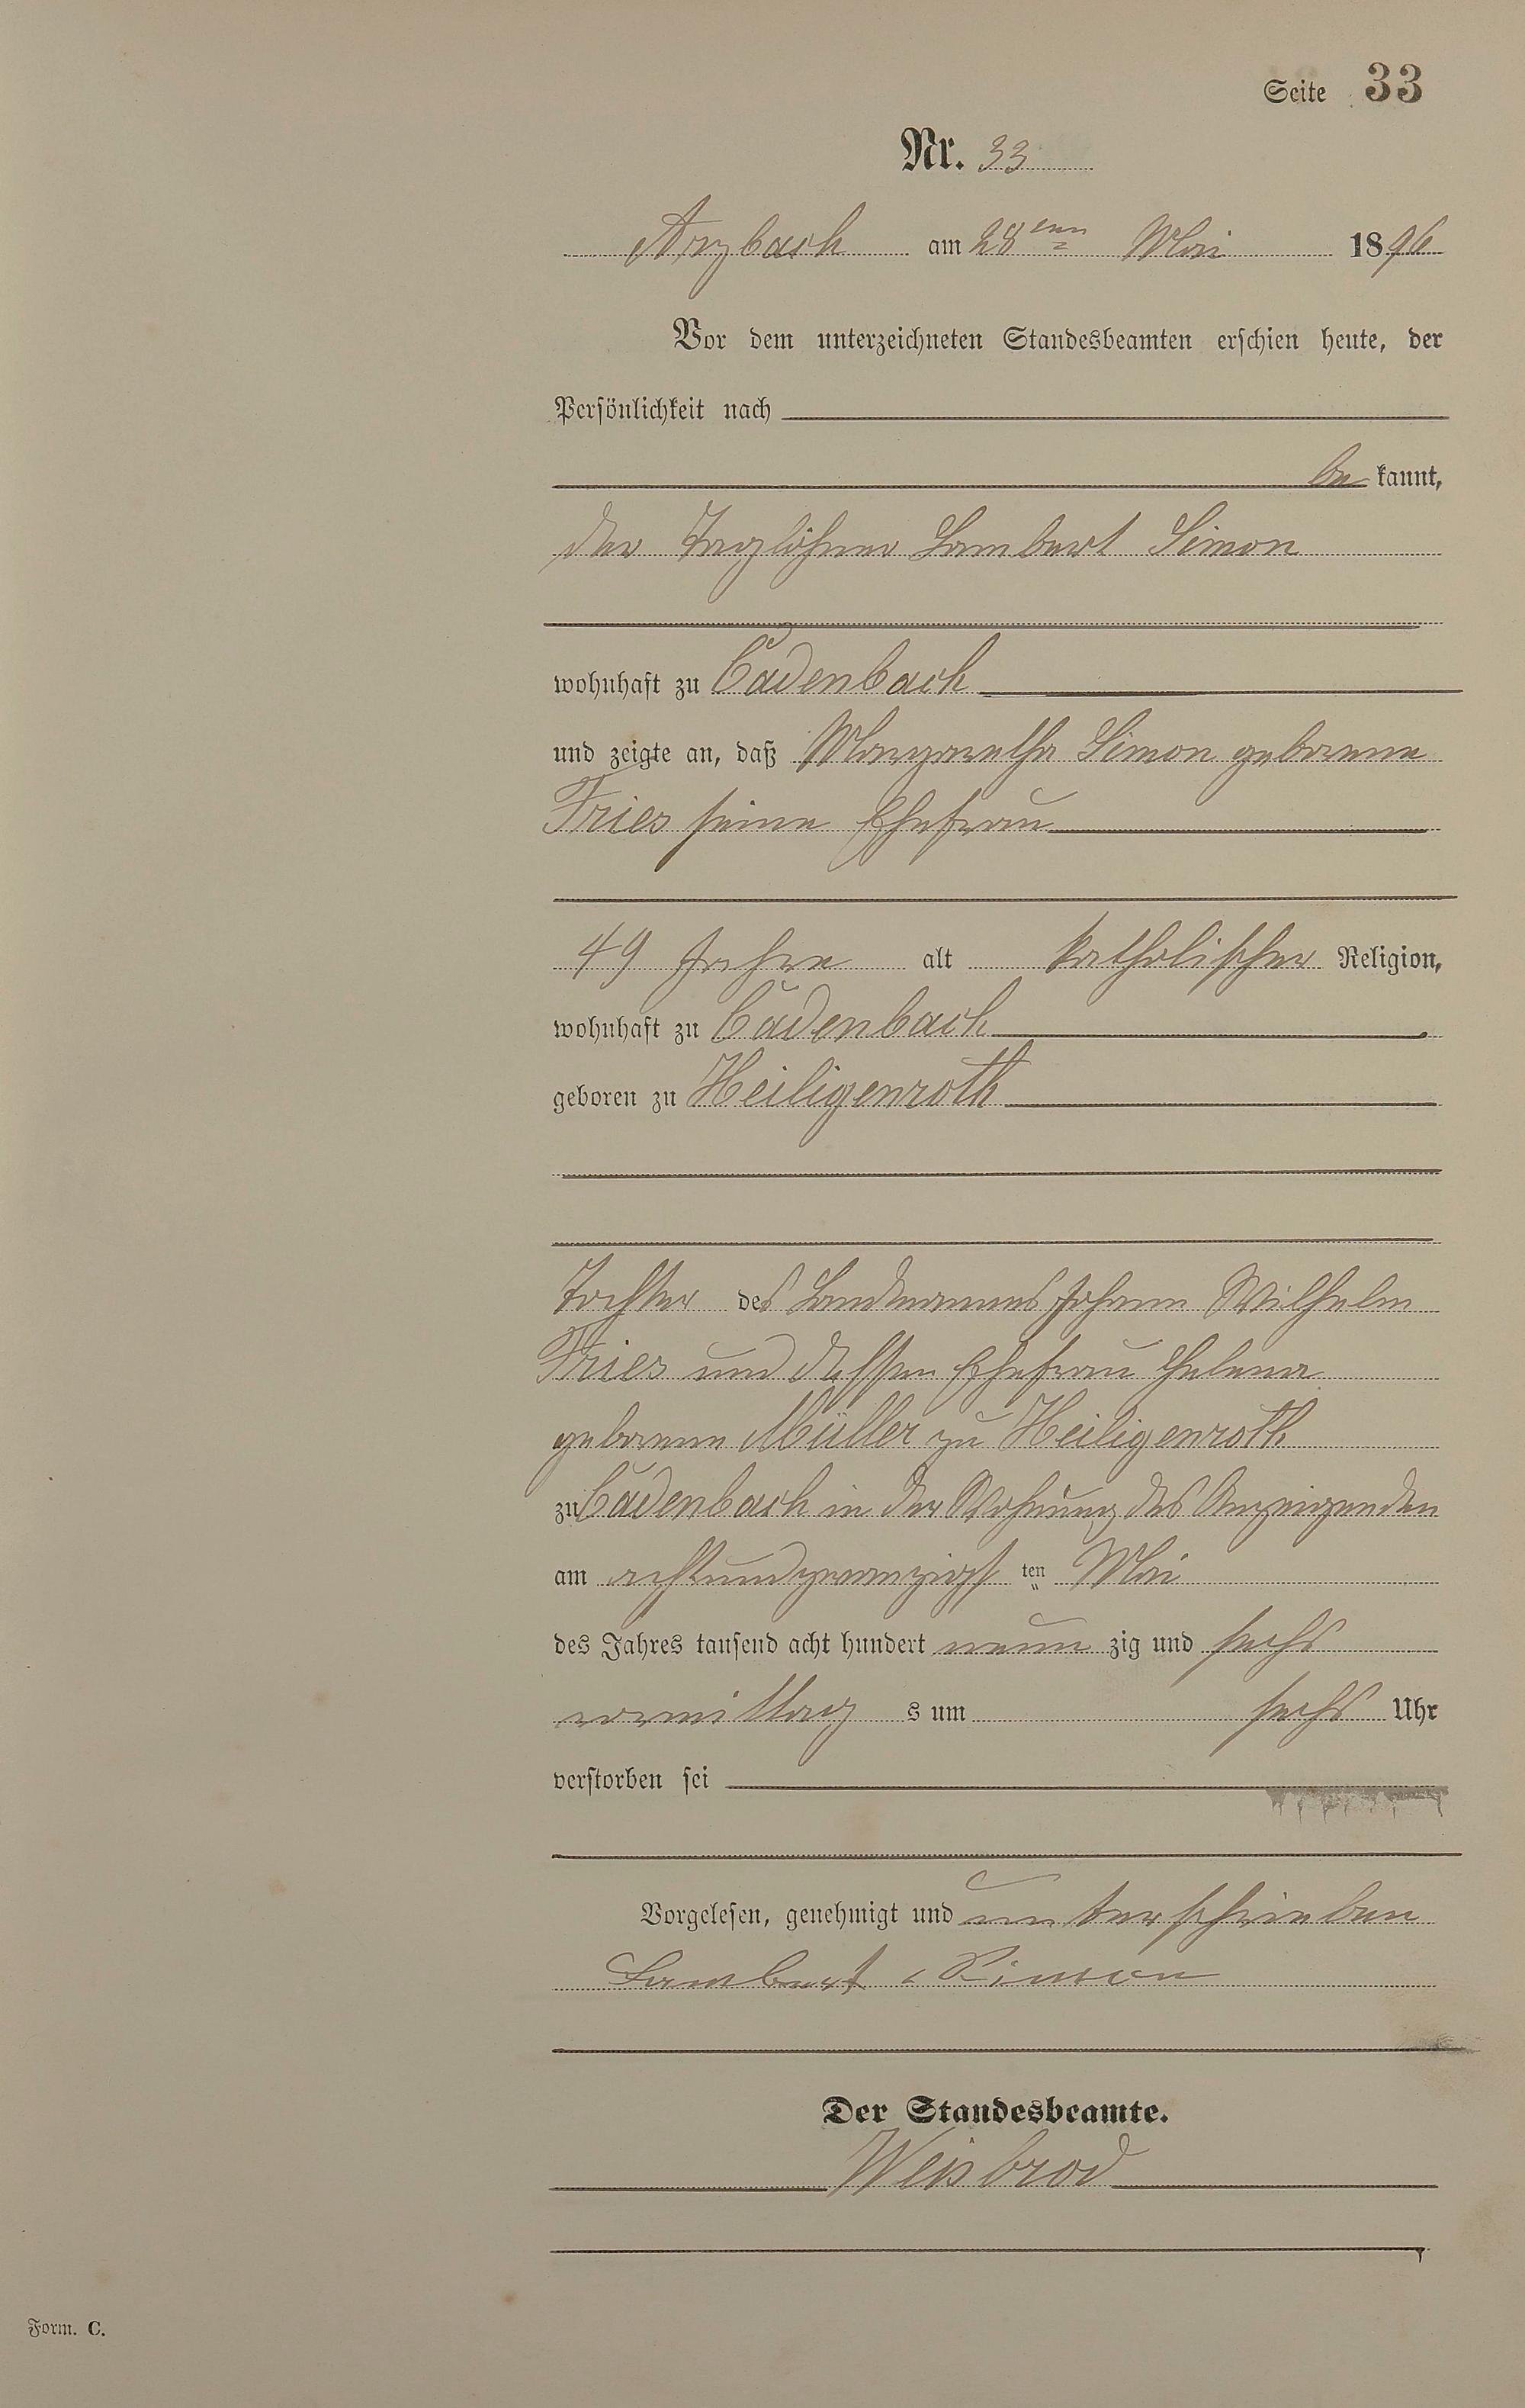 Seite 33
Nr. 33
Arzbach am 28ten Mai 1896
Vor dem unterzeichneten Standesbeamten erschien heute, der
Persönlichkeit nach
be kannt,
der Taglöhner Lambert Simon
wohnhaft zu Cadenbach
und zeigte an, daß Margaretha Simon geborene
Fries seine Ehefrau
49 Jahre alt katholischer Religion,
wohnhaft zu Cadenbach
geboren zu Heiligenroth
Tochter des Landmannes Johann Wilhelm
Fries und dessen Ehefrau Helena
geborene Müller zu Heiligenroth
zu Cadenbach in der Wohnung des Anzeigenden
am achtundzwanzigsten Mai
des Jahres tausend acht hundert neun zig und sechs
vormittag s um sechs Uhr
verstorben sei
Vorgelesen, genehmigt und unterschrieben
Lambert Simon
Der Standesbeamte.
Weisbrod
Form. C.